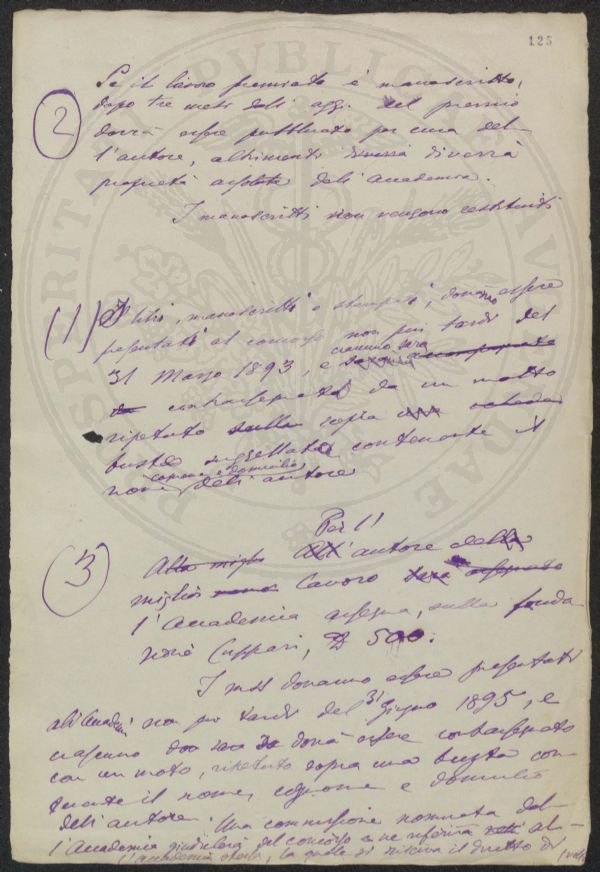 125
Se il lavoro premiato è manoscritto,
dopo tre mesi dall' agg. del premio
dovrà essere pubblicato per cura del-
l'autore, altrimenti diverrà
proprietà assoluta dell'Accademia.
I manoscritti non vengono restituiti
(2)
(1) I libri, manoscritti o stampati, dovranno essere
presentati al concorso non più tardi del
31 Marzo 1893, e ciascuno sarà
contrassegnato da un motto
ripetuto sopra
busta suggellata contenente il
nome cognome e domicilio dell'autore
(3)
Per l'
autore
miglior lavoro
l'Accademia assegna, sulla fonda
zione Cuppari, 500.
I mss dovranno essere presentati
all'Accad. non più tardi del 31 Giugno 1895, e
ciascuno dovrà essere contrassegnato
con un motto, ripetuto sopra una busta con-
tenente il nome, cognome e domicilio
dell'autore. Una commissione nominata dal-
l'Accademia giudicherà del concorso e ne riferirà al-
l'Accademia stessa, la quale si riserva il diritto di